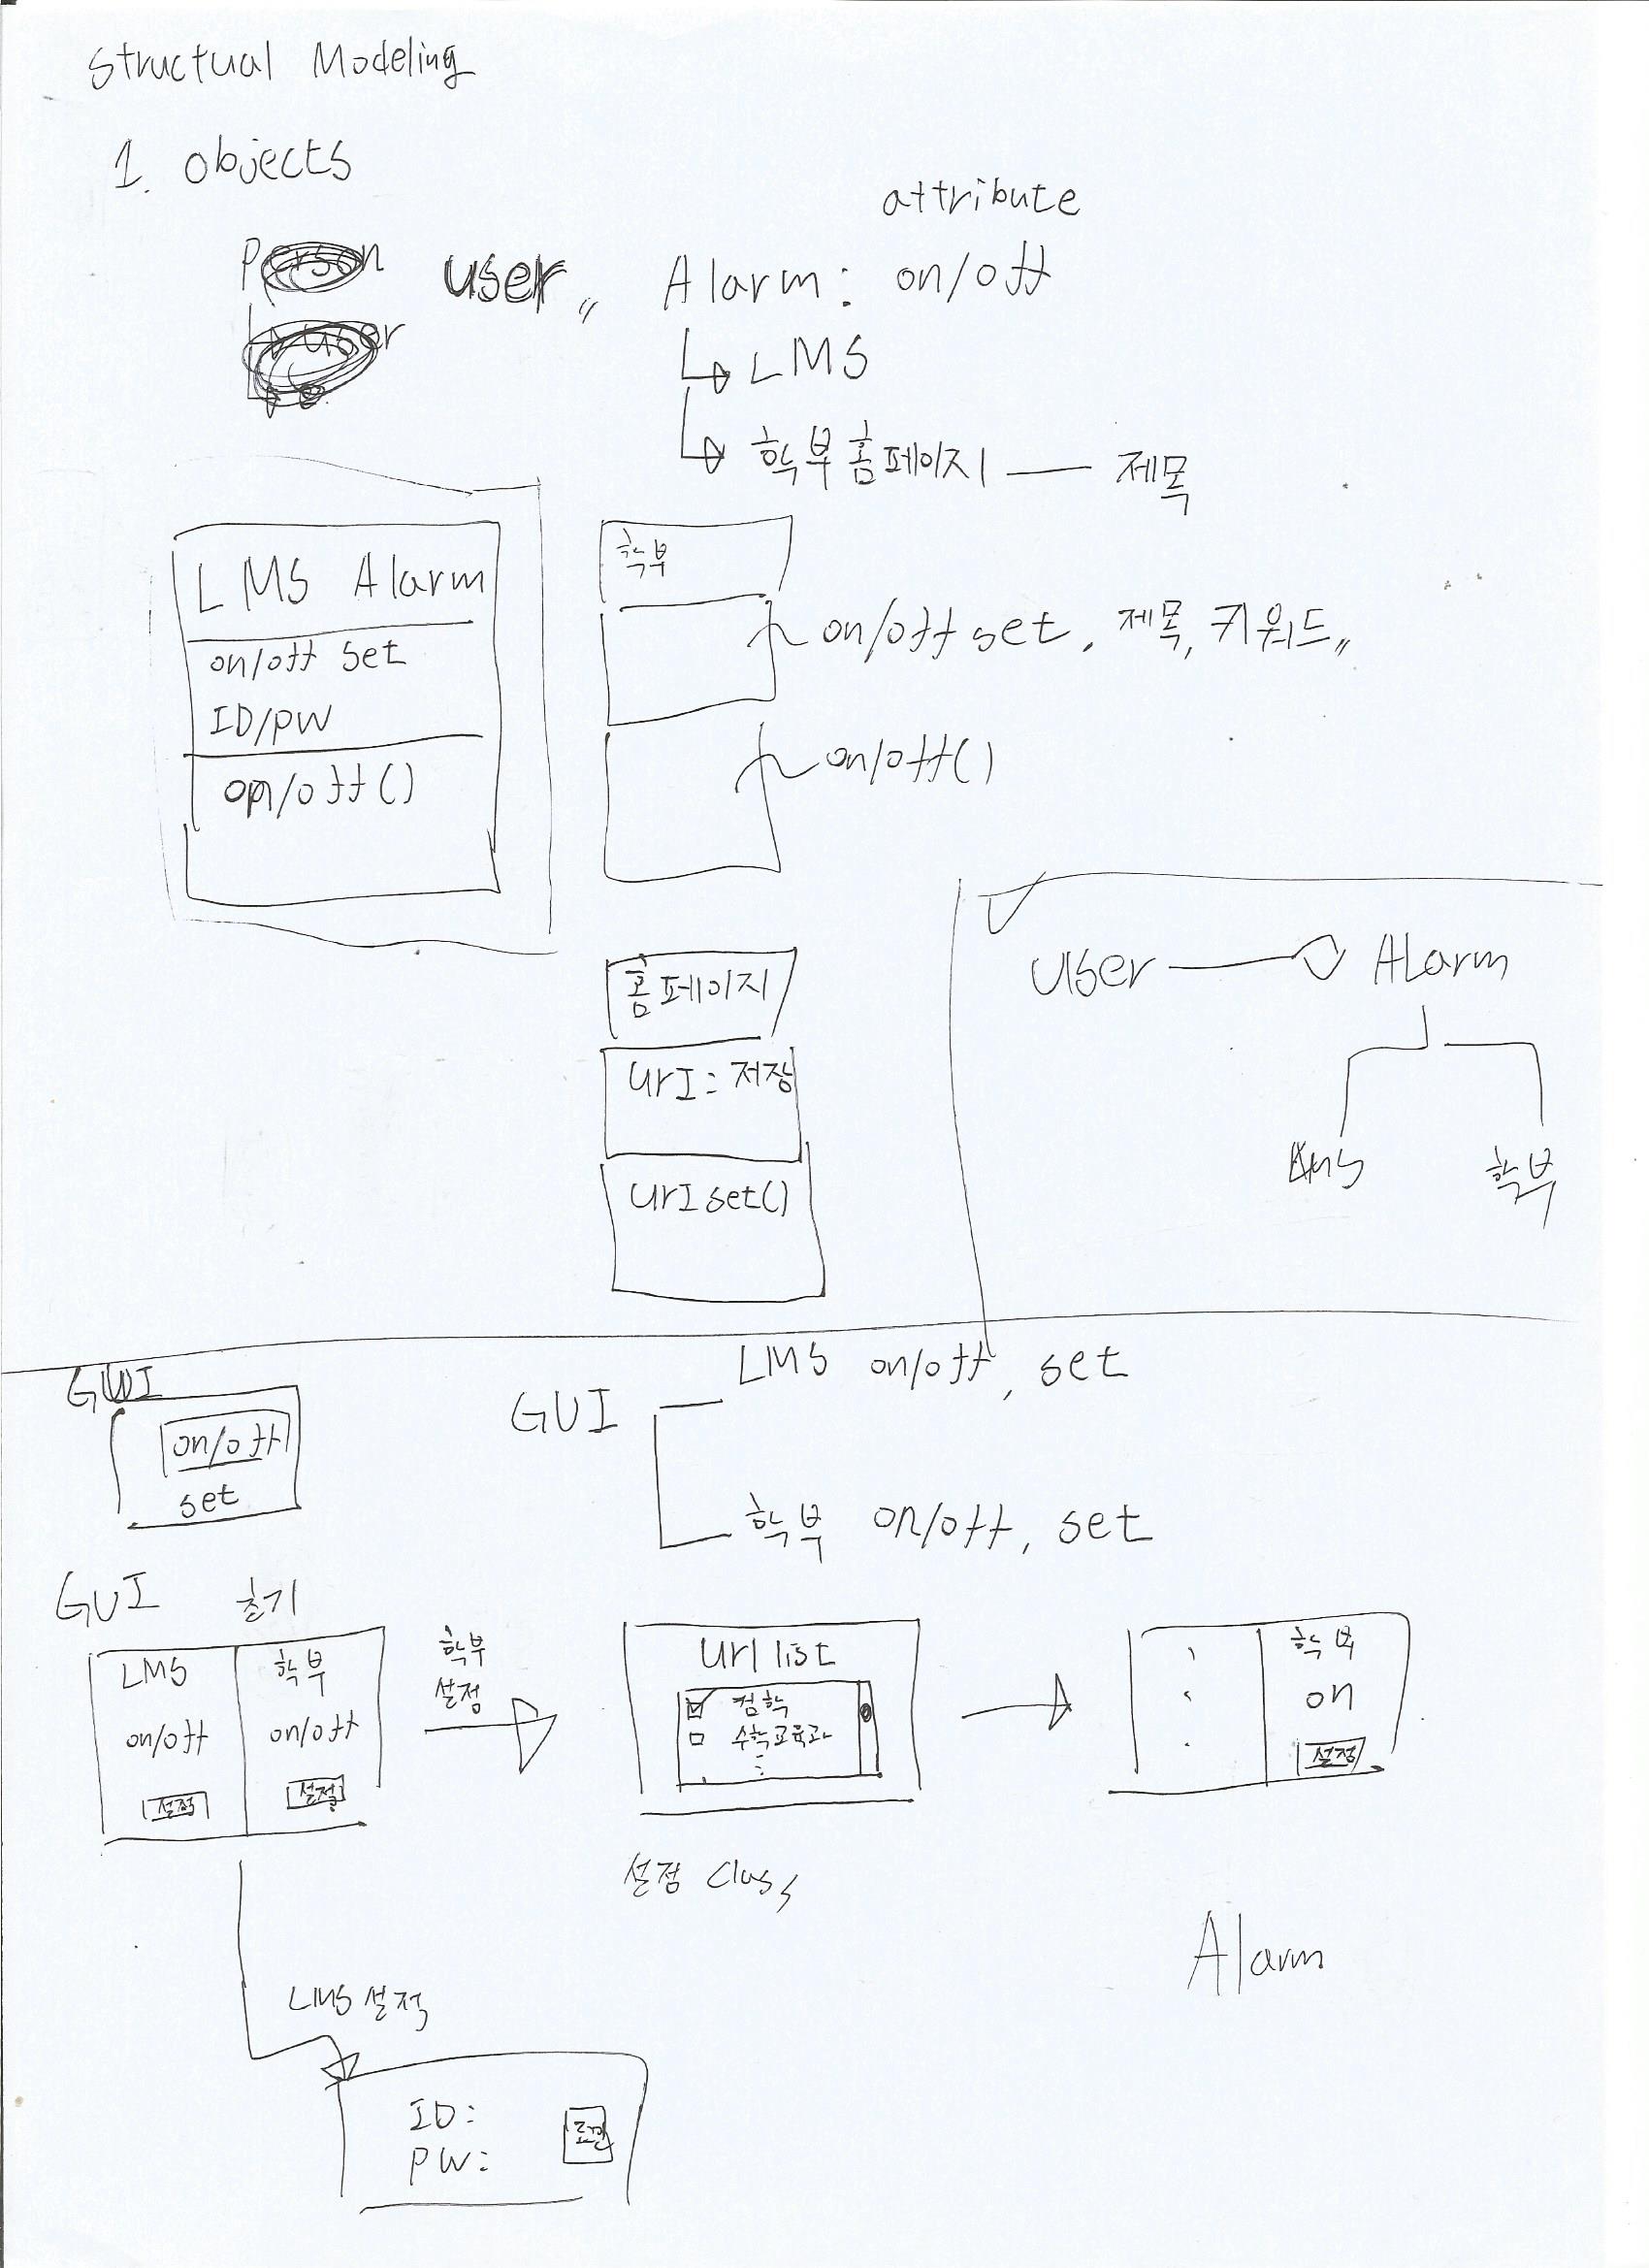 Structual Modeling
1. objects
attribute
Person user,, Alarm: on/off
user
LMS
학부 홈페이지 — 제목
LMS Alarm
on/off set
ID/PW
on/off()
학부
on/off set, 제목, 키워드,,
on/off()
홈페이지
Url: 저장
Url set()
User Alarm
LMS 학부
GUI
on/off
set
GUI
LMS on/off, set
학부 on/off, set
GUI 초기
LMS 학부
on/off on/off
설정 설정
학부
설정
Url list
컴학
수학교육과
설정 Class
학부
on
설정
Alarm
LMS 설정
ID:
PW: